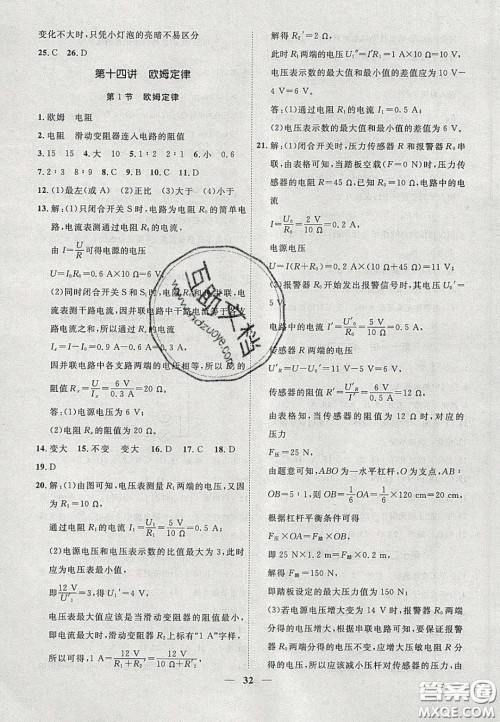 变化不大时,只凭小灯泡的亮暗不易区分
25. C 26. D
第十四讲 欧姆定律
第1节 欧姆定律
1. 欧姆 电阻
2. 电阻 滑动变阻器连入电路的阻值
3. 15 15 大 4. 10 5. 1∶2 2∶1 6. 小 0.6
7. 2 8. 9 9. 1∶3 1∶3 10. B 11. D
12. (1)最左(或A) (2)正比 (3)大于 (4)小于
13. 解:(1)只闭合开关S时,电路为电阻R₀的简单电
路,通过电阻R₀的电流
由 I=U/R 可得电源的电压
U=I₀R₀=0.6 A×10 Ω=6 V
(2)同时闭合开关S和S₁时,两电阻并联,电流
表测干路电流,因并联电路中干路电流等于各支
路电流之和,所以通过Rₓ的电流
Iₓ=I-I₀=0.9 A-0.6 A=0.3 A
因并联电路中各支路两端的电压相等,所以Rₓ的
阻值Rₓ=U/Iₓ=6 V/0.3 A=20 Ω。
答:(1)电源电压为6 V
(2)电阻Rₓ的阻值为20 Ω。
14. 变大 15. 不变 变大 16. C 17. C 18. D
19. D
20. 解:(1)由图可知,电压表测量R₁两端的电压,又因
为R₁=10 Ω,
通过电阻R₁的电流I=U₁/R₁=5 V/10 Ω=0.5 A;
(2)电源电压和电压表示数的比值最大时,电压
表为最小值,
即12 V/U′₁=3,得U₁′=4 V
电压表示数最大时,滑动变阻器的电流最大,由题
意,此时电路中,滑动变阻器R₂上标有“1 A”字样,
所以I最大=12 V/(R₁+R₂″)=12 V/(10 Ω+R₂″)=1 A,
解得R₂″=2 Ω
此时R₁两端的电压U₁″=I″R₁=1 A×10 Ω=10 V
电压表示数的最大值和最小值的差值为10 V
-4 V=6 V
答:(1)通过电阻R₁的电流I=0.5 A;
(2)电压表示数的最大值与最小值的差值为6 V。
21. 解:(1)由图可知,压力传感器R和报警器R₀串
联,由表可知,当踏板空载(F=0 N)时,压力传
感器的阻值R=45 Ω,已知R₀=10 Ω,电路中的
电流
I=U₀/R₀=2 V/10 Ω=0.2 A,
电源电压
U=I(R+R₀)=0.2 A×(10 Ω+45 Ω)=11 V
(2)报警器R₀开始发出报警信号时,其电压
U′₀=5 V
电路中的电流I′=U′₀/R₀=5 V/10 Ω=0.5 A
传感器R两端的电压
U′R=U-U′₀=11 V-5 V=6 V
传感器的阻值R′=U′R/I′=6 V/0.5 A=12 Ω,
由表格知,当传感器的阻值为12 Ω时,对应的
压力
F压=25 N
由题意可知,ABO为一水平杠杆,O为支点
OB=1/6 AO=1/6×AO=1/6×120 cm=20 cm
根据杠杆平衡条件可得
F压×OA=F踏×OB,
即25 N×1.2 m=F踏×0.2 m,
解得F踏=150 N
即踏板设定的最大压力值为150 N;
(3)若电源电压增大,根据串联分压,报警器R₀两端
的电压增大,根据串联电路的特点,要保证报警器
R₀两端的电压不变,应增大电阻R得分得
的电压,所以应该减小压杆对传感器的压力,由
32
互助文档
www.hdzuoye.com
答案圈
MXQE.COM